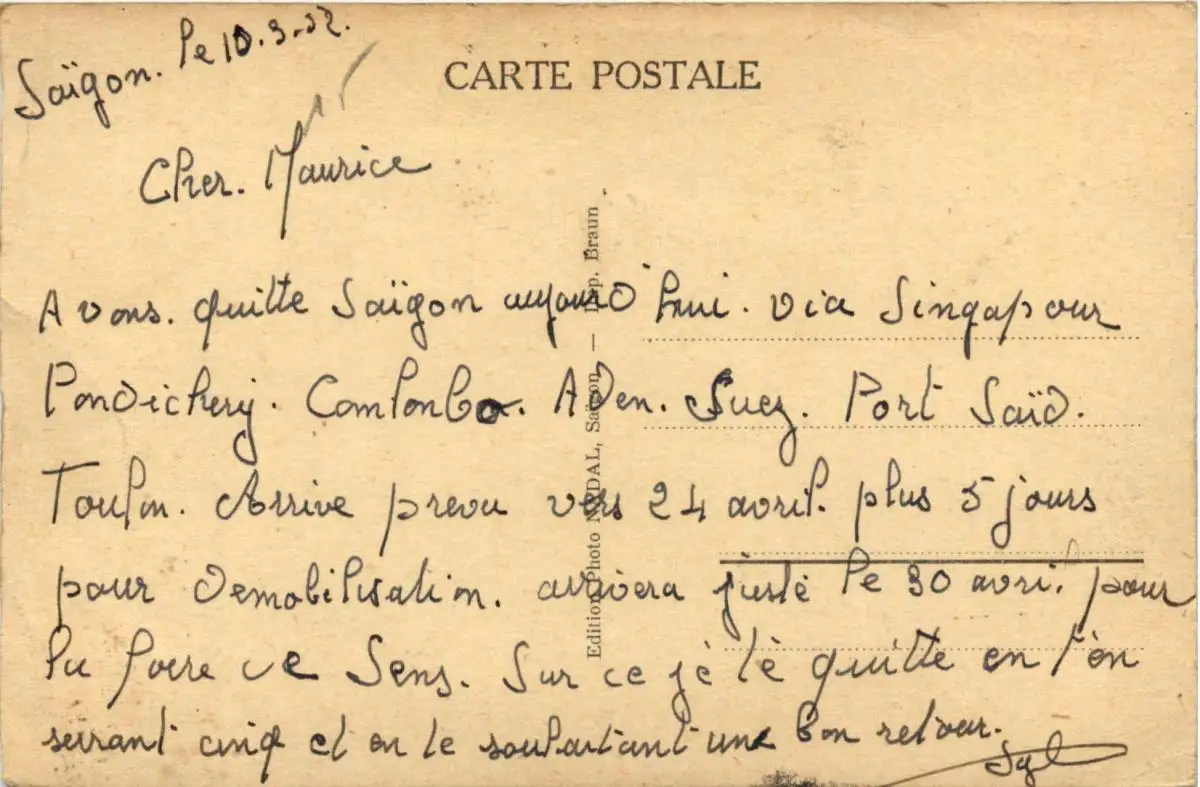 Saïgon. le 10.3.32.
CARTE POSTALE
Cher. Maurice
Avons. quitte Saïgon aujourd'hui. via Singapour
Pondichery. Comlombo. Aden. Suez. Port Saïd.
Toulon. Arrive prevu vers 24 avril. plus 5 jours
pour demobilisation. arrivera juste le 30 avril pour
la foire de Sens. Sur ce je te quitte en t'en
serrant cinq et en te souhaitant une bon retour.
Edition Photo NADAL, Saïgon — Imp. Braun